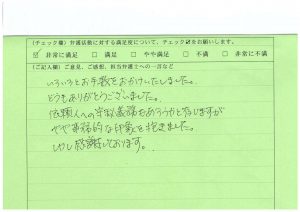 (チェック欄)弁護活動に対する満足度について、チェック☑をお願いします。
☑ 非常に満足 □ 満足 □ やや満足 □ 不満 □ 非常に不満
(ご記入欄)ご意見、ご感想、担当弁護士への一言など
いろいろとお手数をおかけいたしました。
どうもありがとうございました。
依頼人への守秘義務もあろうかと存じますが
やや事務的な印象を抱きました。
しかし感謝しております。